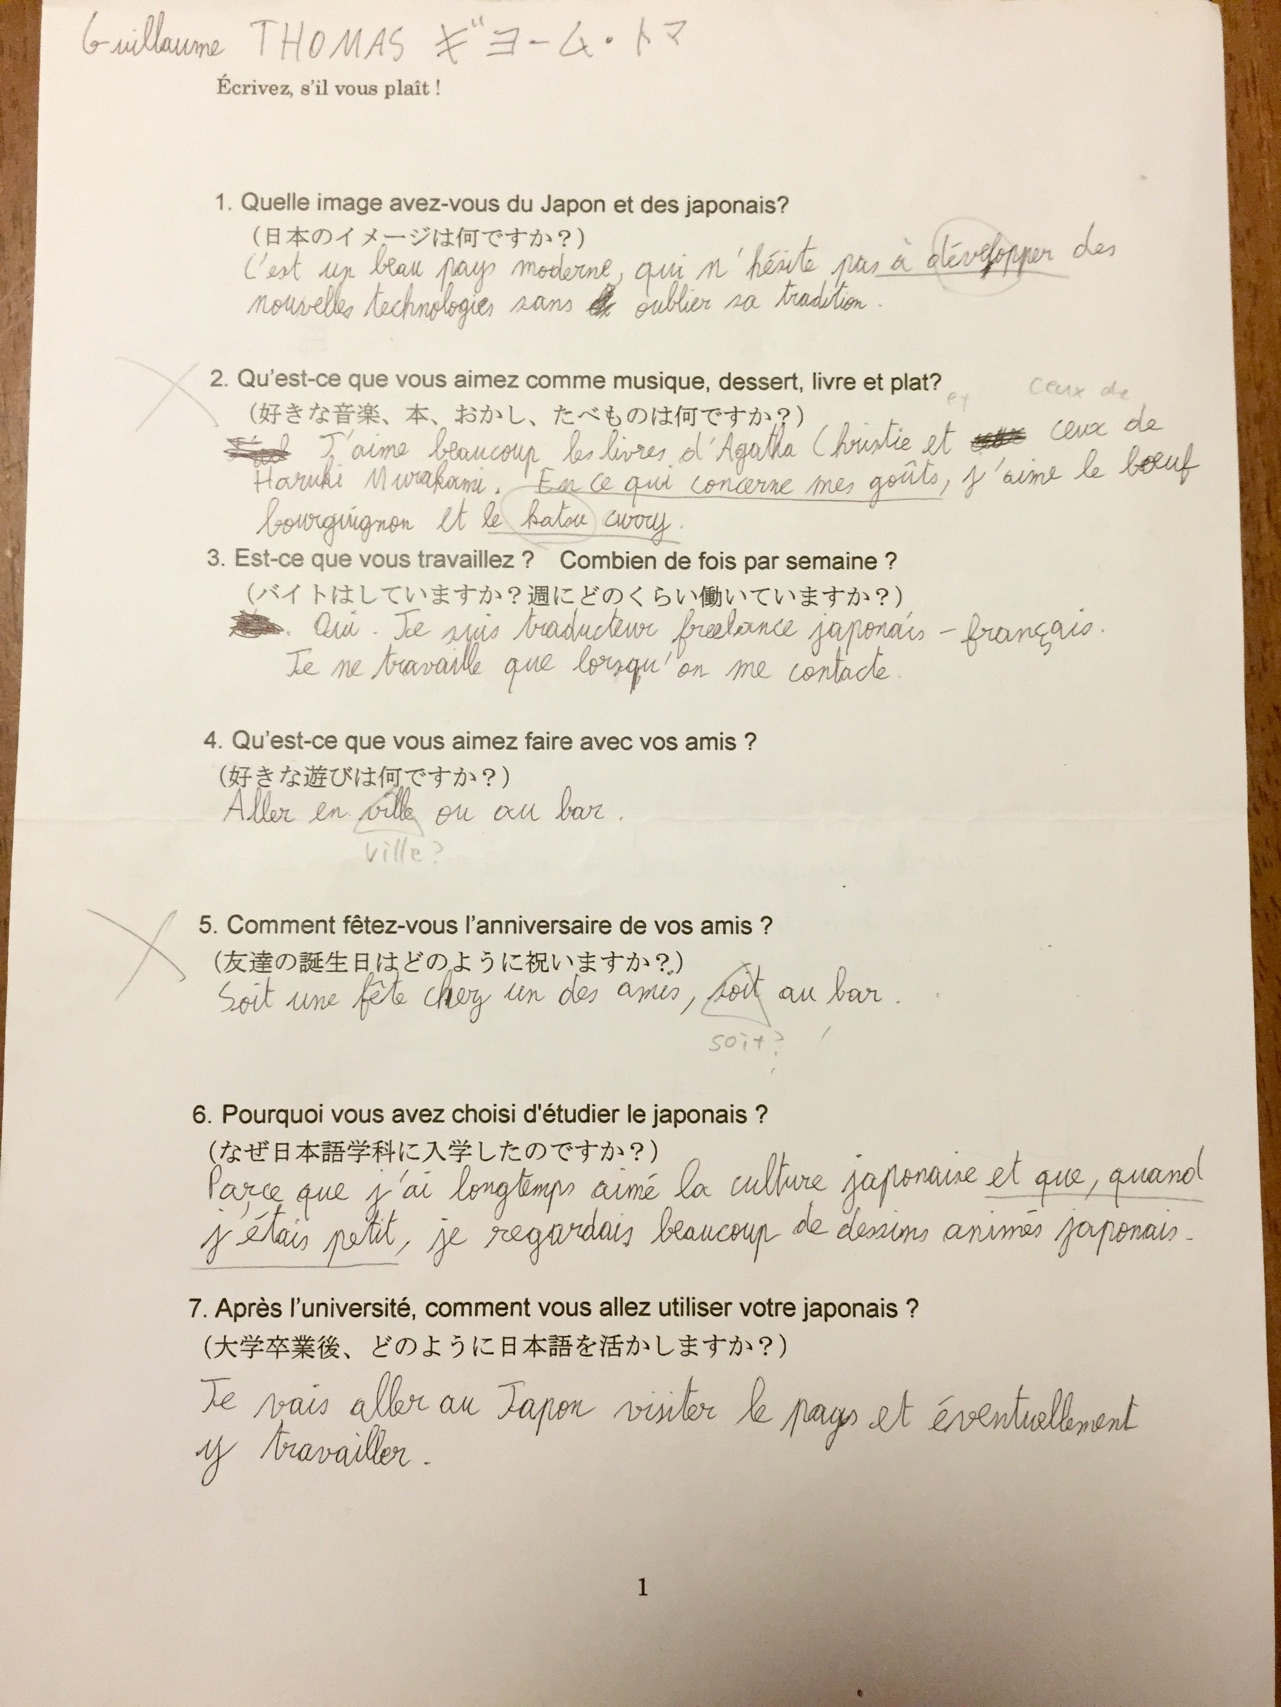 Guillaume THOMAS ギヨーム・トマ
Écrivez, s'il vous plaît !
1. Quelle image avez-vous du Japon et des japonais?
(日本のイメージは何ですか?)
C'est un beau pays moderne, qui n'hésite pas à développer des
nouvelles technologies sans oublier sa tradition.
2. Qu'est-ce que vous aimez comme musique, dessert, livre et plat?
(好きな音楽、本、おかし、たべものは何ですか?)
et ceux de
J'aime beaucoup les livres d'Agatha Christie et ceux de
Haruki Murakami. En ce qui concerne mes goûts, j'aime le bœuf
bourguignon et le katsu curry.
3. Est-ce que vous travaillez ? Combien de fois par semaine ?
(バイトはしていますか?週にどのくらい働いていますか?)
Oui. Je suis traducteur freelance japonais-français.
Je ne travaille que lorsqu'on me contacte.
4. Qu'est-ce que vous aimez faire avec vos amis ?
(好きな遊びは何ですか?)
Aller en ville ou au bar.
ville?
5. Comment fêtez-vous l'anniversaire de vos amis ?
(友達の誕生日はどのように祝いますか?)
Soit une fête chez un des amis, soit au bar.
soit?
6. Pourquoi vous avez choisi d'étudier le japonais ?
(なぜ日本語学科に入学したのですか?)
Parce que j'ai longtemps aimé la culture japonaise et que, quand
j'étais petit, je regardais beaucoup de dessins animés japonais.
7. Après l'université, comment vous allez utiliser votre japonais ?
(大学卒業後、どのように日本語を活かしますか?)
Je vais aller au Japon visiter le pays et éventuellement
y travailler.
1